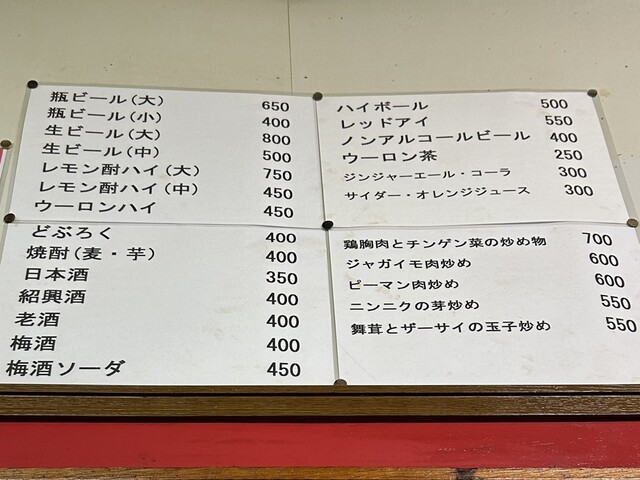 瓶ビール(大) 650
瓶ビール(小) 400
生ビール(大) 800
生ビール(中) 500
レモン酎ハイ(大) 750
レモン酎ハイ(中) 450
ウーロンハイ 450
ハイボール 500
レッドアイ 550
ノンアルコールビール 400
ウーロン茶 250
ジンジャーエール・コーラ 300
サイダー・オレンジジュース 300
どぶろく 400
焼酎(麦・芋) 400
日本酒 350
紹興酒 400
老酒 400
梅酒 400
梅酒ソーダ 450
鶏胸肉とチンゲン菜の炒め物 700
ジャガイモ肉炒め 600
ピーマン肉炒め 600
ニンニクの芽炒め 550
舞茸とザーサイの玉子炒め 550